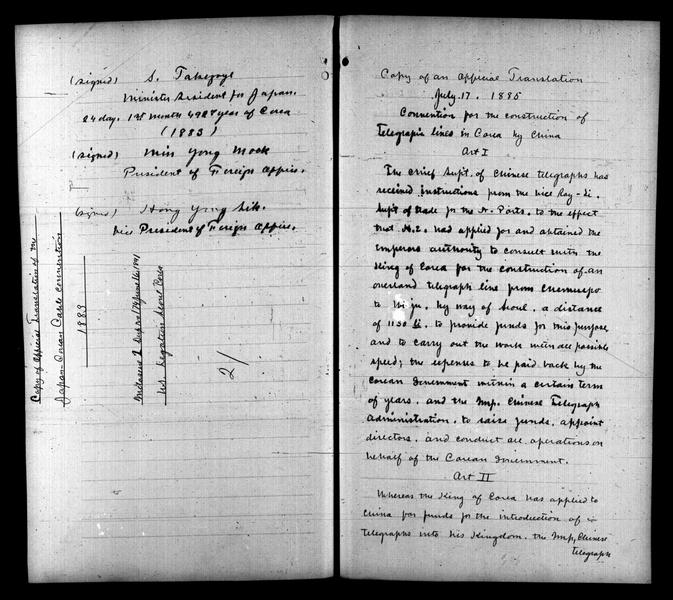 (signed) S. Takezoye
Minister Resident for Japan.
24 day. 1st month 492d year of Corea
(1883)
(signed) Min Yong Mook
President of Foreign Office.
(signed) Hong Yong Sik.
Vice President of Foreign Office.
Copy of Official Translation of the
Japan-Corean Cable Convention
1883
Inclosure 2
U.S. Legation Seoul Corea
2/
Copy of an Official Translation
July. 17. 1885
Convention for the construction of
Telegraph lines in Corea by China
Art I
The Chief Supt. of Chinese telegraphs has
received instructions from the Vice Roy - Li.
Supt of trade for the N. Ports. to the effect
that H.E. has applied for and obtained the
Emperors authority to consult with the
King of Corea for the construction of an
overland telegraph line from Chemulpo
to Wi ju. by way of Seoul. a distance
of 1130 li. to provide funds for this purpose
and to carry out the work with all possible
speed; the expenses to be paid back by the
Corean Government within a certain term
of years. and the Imp. Chinese Telegraph
administration. to raise funds. appoint
directors. and conduct all operations on
behalf of the Corean Government.
Art II
Whereas the King of Corea has applied to
China for funds for the introduction of
telegraphs into his Kingdom. the Imp, Chinese
telegraph